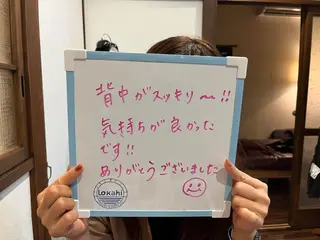 背中がスッキリ〜!!
気持ちが良かった
です!!
ありがとうございました
Lokahi